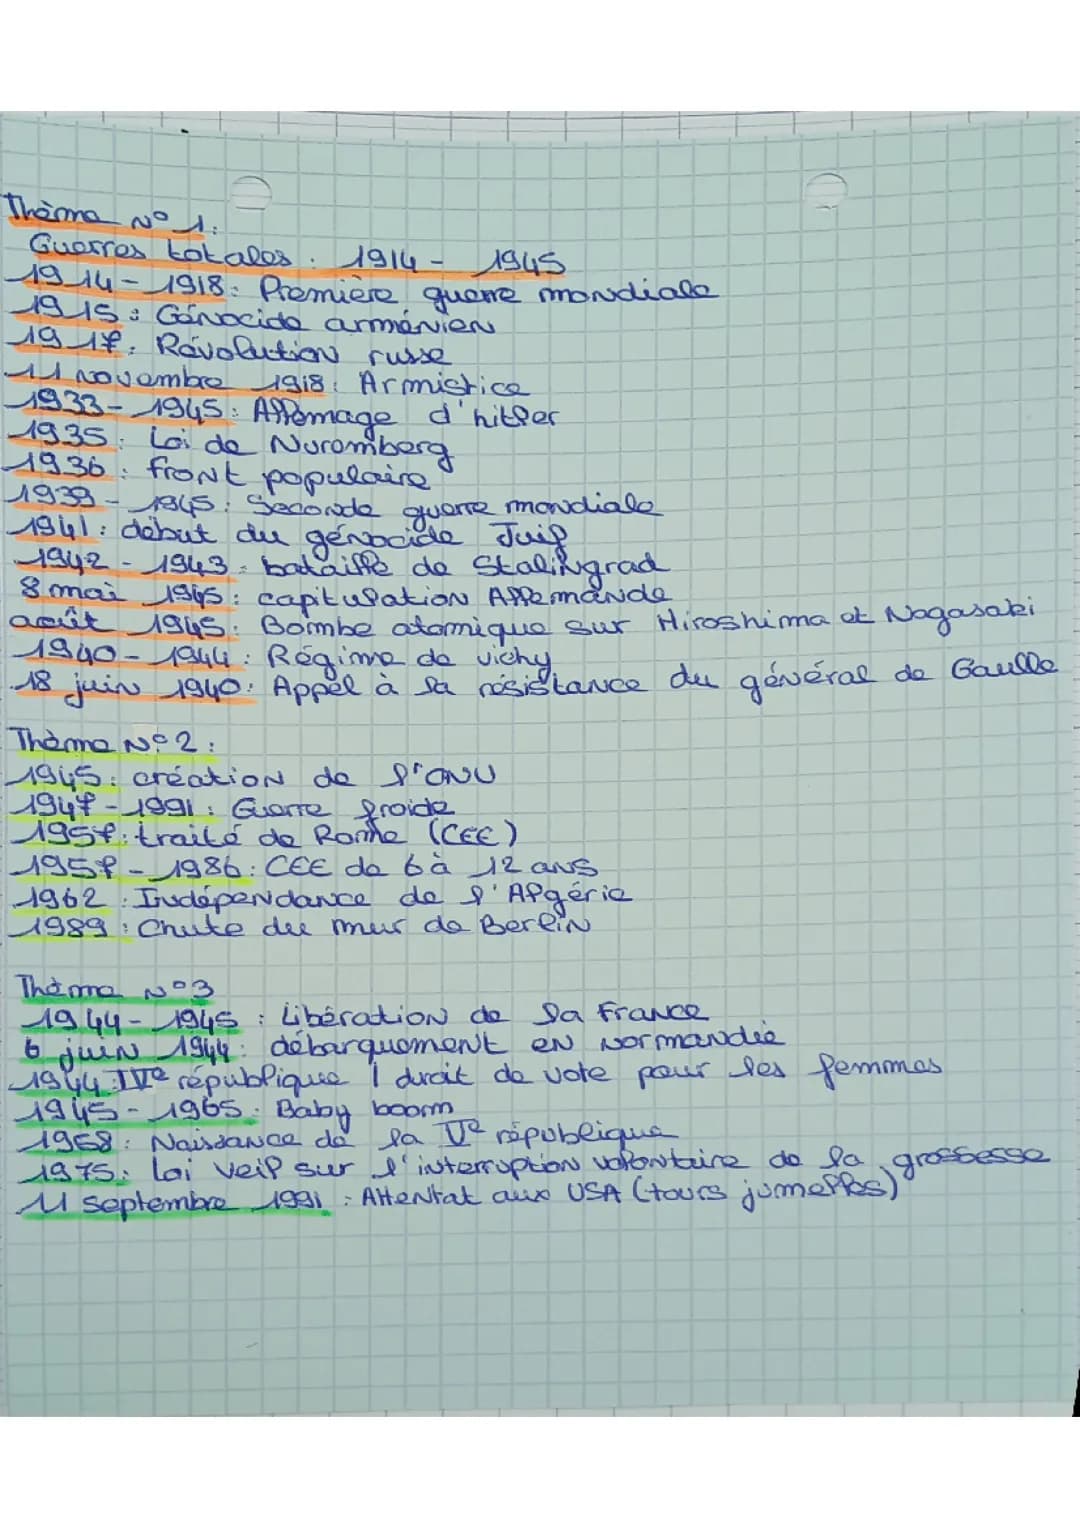 Thème N° 1:
Guerres totales : 1914 - 1945
1914 - 1918 : Première guerre mondiale
1915 : Génocide arménien
1917 : Révolution russe
11 Novembre 1918 : Armistice
1933 - 1945 : Allemage d'hitler
1935 : Loi de Nuremberg
1936 : front populaire
1939 - 1945 : Seconde guerre mondiale
1941 : début du génocide Juif
1942 - 1943 - bataille de Stalingrad
8 mai 1945 : capitulation Allemande
août 1945 : Bombe atomique sur Hiroshima et Nagasaki
1940 - 1944 : Régime de vichy
18 juin 1940 : Appel à la résistance du général de Gaulle
Thème N° 2 :
1945 : création de l'ONU
1947 - 1991 : Guerre froide
1957 : traité de Rome (CEE)
1957 - 1986 : CEE de 6 à 12 ans
1962 : Indépendance de l'Algérie
1989 : Chute du mur de Berlin
Thème N° 3
1944 - 1945 : Libération de la France
6 juin 1944 : débarquement en Normandie
1944 : IVe république / droit de vote pour les femmes
1945 - 1965 : Baby boom
1958 : Naissance de la Ve république
1975 : Loi veil sur l'interruption volontaire de la grossesse
11 septembre 1991 : Attentat aux USA (tours jumelles)